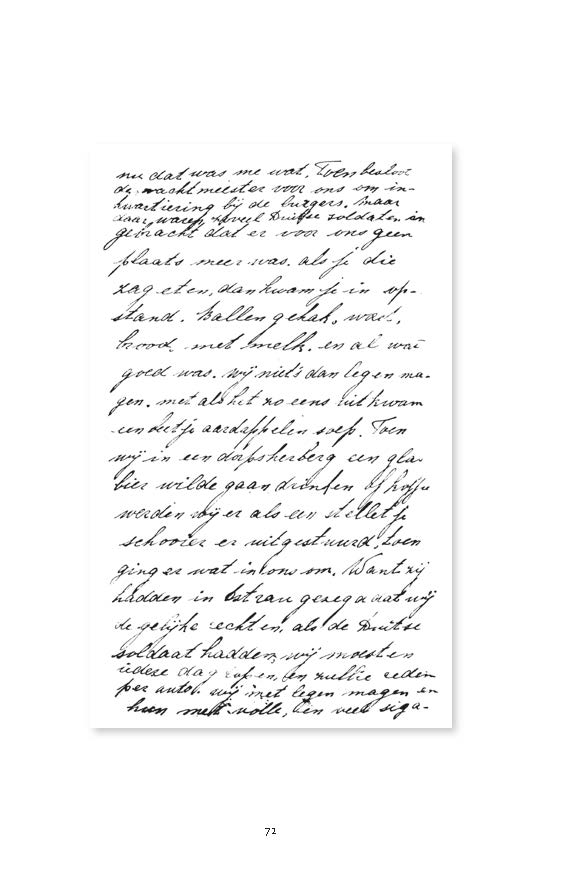 nu dat was me wat. Toen besloot
de wachtmeester voor ons om in-
kwartiering bij de burgers. maar
daar waren zoveel Duitse soldaten in
gebracht dat er voor ons geen
plaats meer was. als je die
zag eten, dan kwam je in op-
stand. Ballen gehak, wort,
brood, met melk. en al wat
goed was. wij niets dan legen ma-
gen. met als het zo eens uit kwam
een beetje aardappelen soep. Toen
wij in een dorpsherberg een glas
bier wilde gaan drinken of koffie
werden wij er als een stelletje
schooier er uitgestuurd, toen
ging er wat in ons om. Want zij
hadden in gezegd dat wij
de gelijke rechten, als de Duitse
soldaat hadden, wij moesten
iedere dag lopen, en zullie reden
per auto. wij met legen magen en
hun met volle, en veel siga-
72